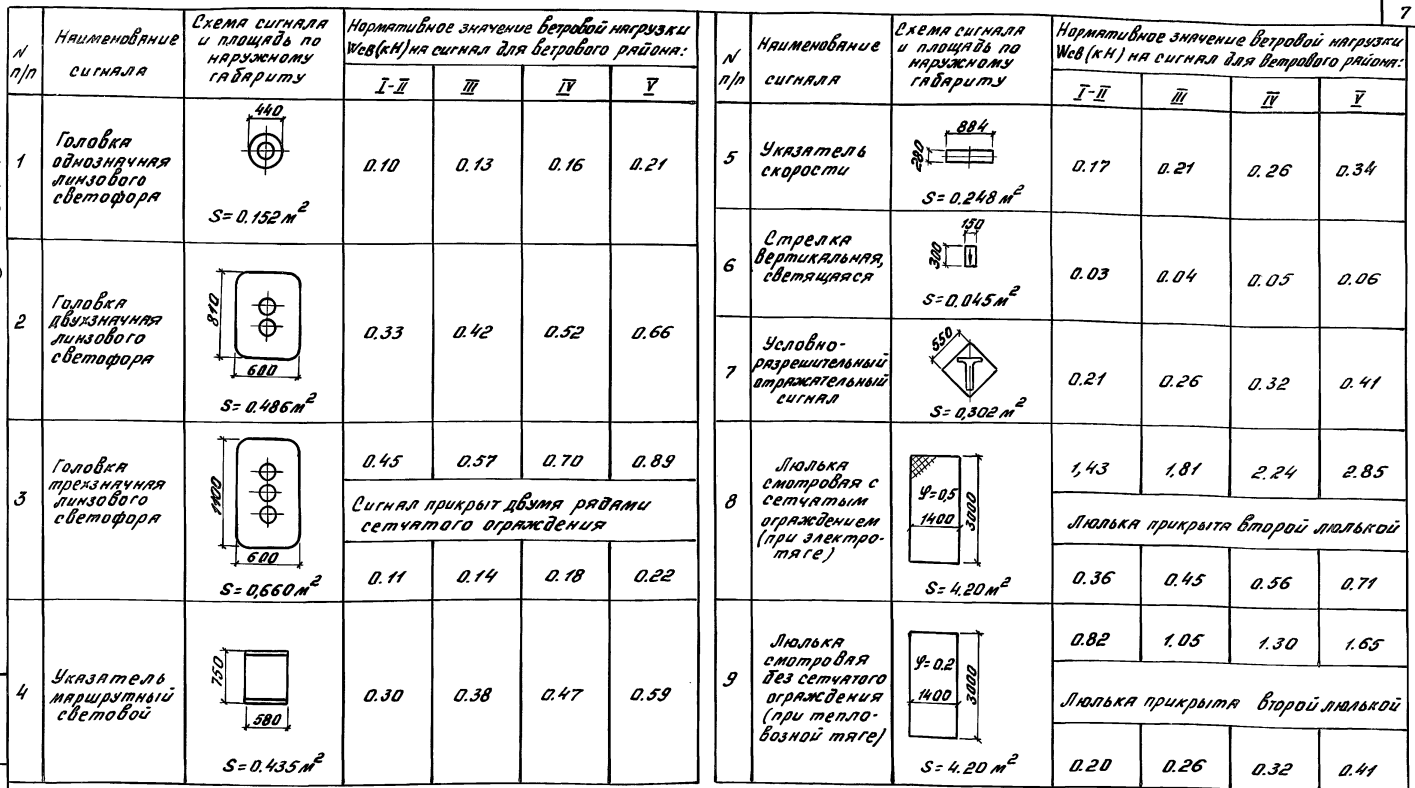 7
N п/п
Наименование сигнала
Схема сигнала и площадь по наружному габариту
Нормативное значение ветровой нагрузки Wсв(кН) на сигнал для ветрового района:
I-II III IV V
1
Головка
однозначная
линзового
светофора
440
S=0.152м²
0.10 0.13 0.16 0.21
2
Головка
двухзначная
линзового
светофора
810
600
S=0.486м²
0.33 0.42 0.52 0.66
3
Головка
трехзначная
линзового
светофора
1100
600
S=0,660м²
0.45 0.57 0.70 0.89
Сигнал прикрыт двумя рядами
сетчатого ограждения
0.11 0.14 0.18 0.22
4
Указатель
маршрутный
световой
750
580
S=0.435м²
0.30 0.38 0.47 0.59
N п/п
Наименование сигнала
Схема сигнала и площадь по наружному габариту
Нормативное значение ветровой нагрузки Wсв(кН) на сигнал для ветрового района:
I-II III IV V
5
Указатель
скорости
884
280
S=0.248м²
0.17 0.21 0.26 0.34
6
Стрелка
вертикальная,
светящаяся
150
300
S=0.045м²
0.03 0.04 0.05 0.06
7
Условно-
разрешительный
отражательный
сигнал
550
S=0,302м²
0.21 0.26 0.32 0.41
8
Люлька
смотровая с
сетчатым
ограждением
(при электро-
тяге)
φ=0,5
1400
3000
S=4.20м²
1,43 1,81 2.24 2.85
Люлька прикрыта второй люлькой
0.36 0.45 0.56 0.71
9
Люлька
смотровая
без сетчатого
ограждения
(при тепло-
возной тяге)
φ=0.2
1400
3000
S=4.20м²
0.82 1.05 1.30 1.65
Люлька прикрыта второй люлькой
0.20 0.26 0.32 0.41